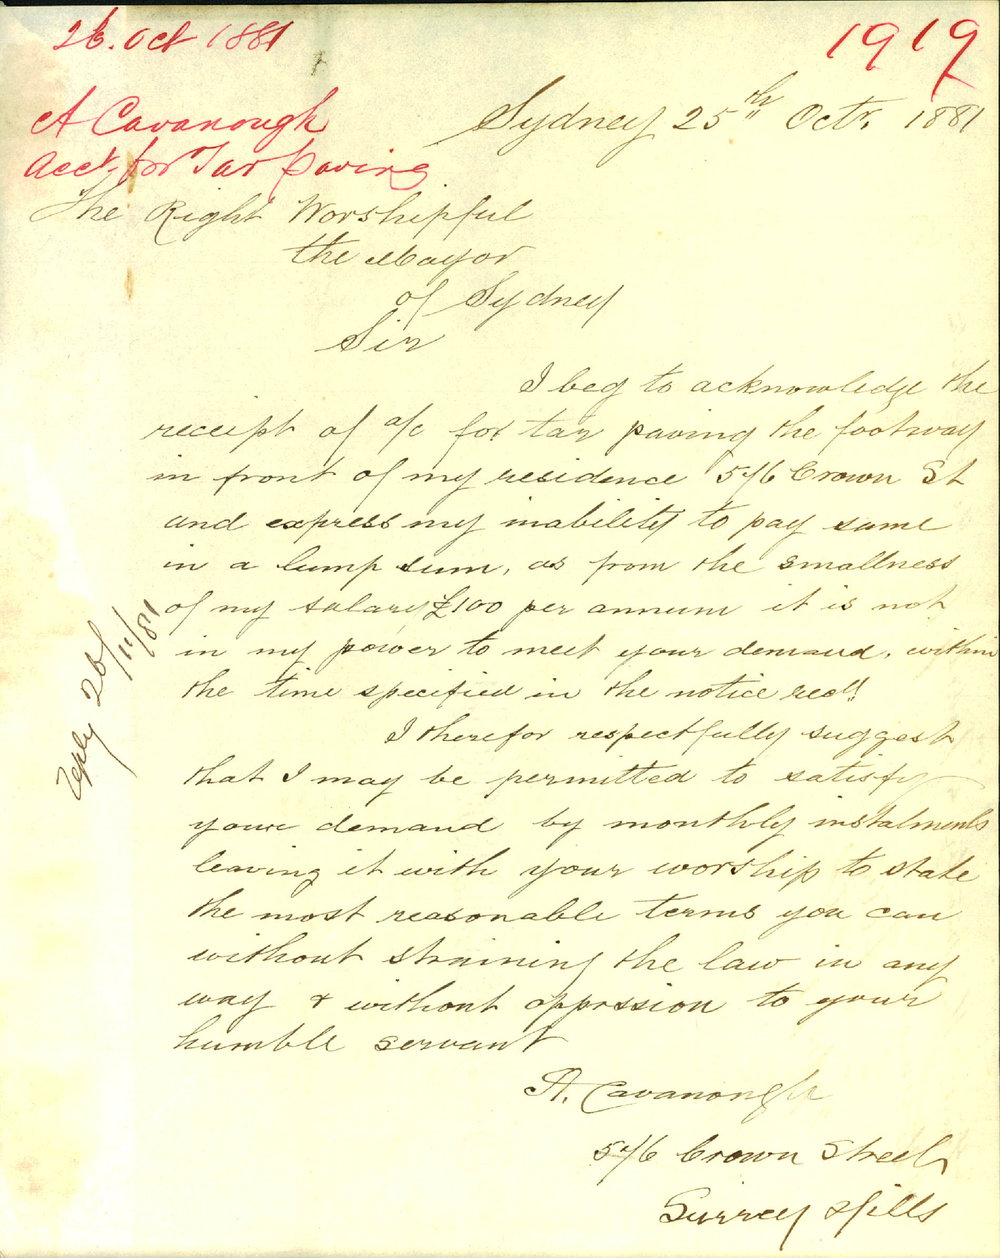 26. Oct 1881
1919
A Cavanough
Acct. for Tar paving
Sydney 25th Octr. 1881
The Right Worshipful
the Mayor
of Sydney
Sir
I beg to acknowledge the
receipt of a/c for tar paving the footway
in front of my residence 546 Crown St
and express my inability to pay same
in a lump sum, as from the smallness
of my salary £100 per annum it is not
in my power to meet your demand, within
the time specified in the notice recd.
I therefor respectfully suggest
that I may be permitted to satisfy
your demand by monthly instalments
leaving it with your worship to state
the most reasonable terms you can
without straining the law in any
way & without opprssion to your
humble servant
A. Cavanough
546 Crown Street
Surrey Hills
Reply 26/11/81